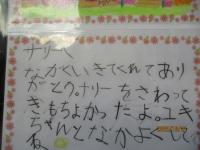 ナリーへ
ながくいきてくれてあり
がとう。ナリーをさわって
きもちよかったよ。ユキ
ちゃんとなかよくして
ね